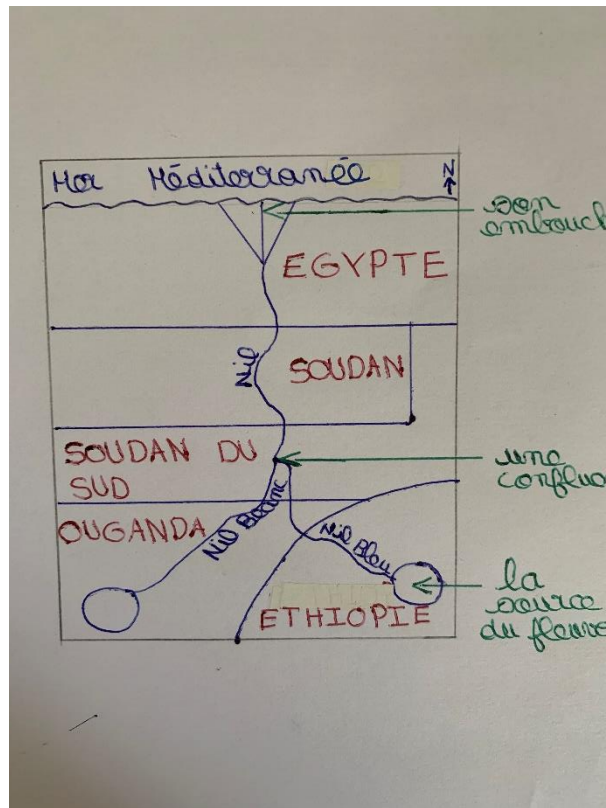 Mer Méditerranée
N
son
embouch
EGYPTE
Nil
SOUDAN
SOUDAN DU
SUD
une
conflue
OUGANDA
Nil Blanc
Nil Bleu
la
source
du fleuve
ETHIOPIE